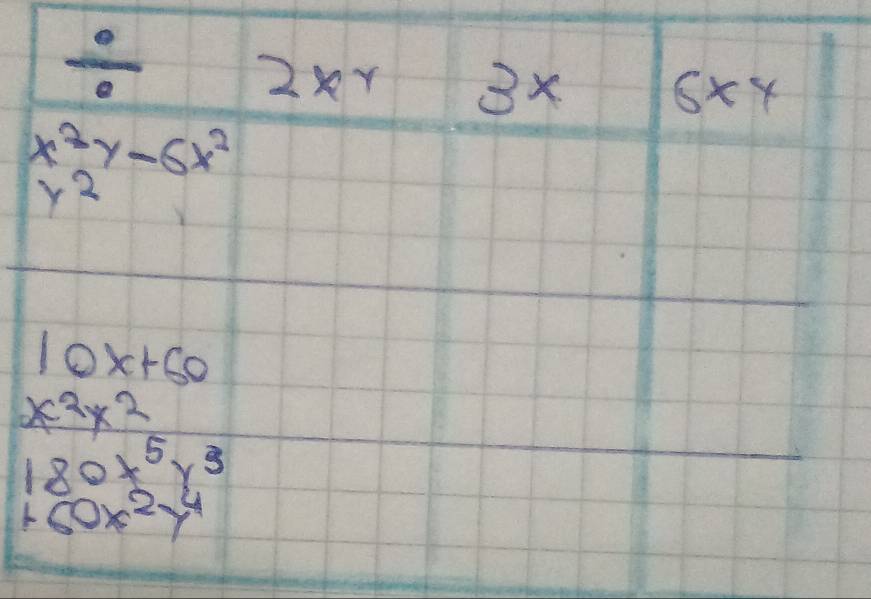 ÷ 2xy 3x 6xy
x²y-6x²
y²
10x+60
x²y²
180x⁵y³
+60x²y⁴